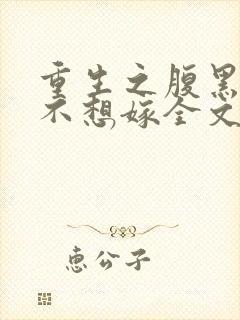 重生之腹黑
不想嫁全文
恵公子